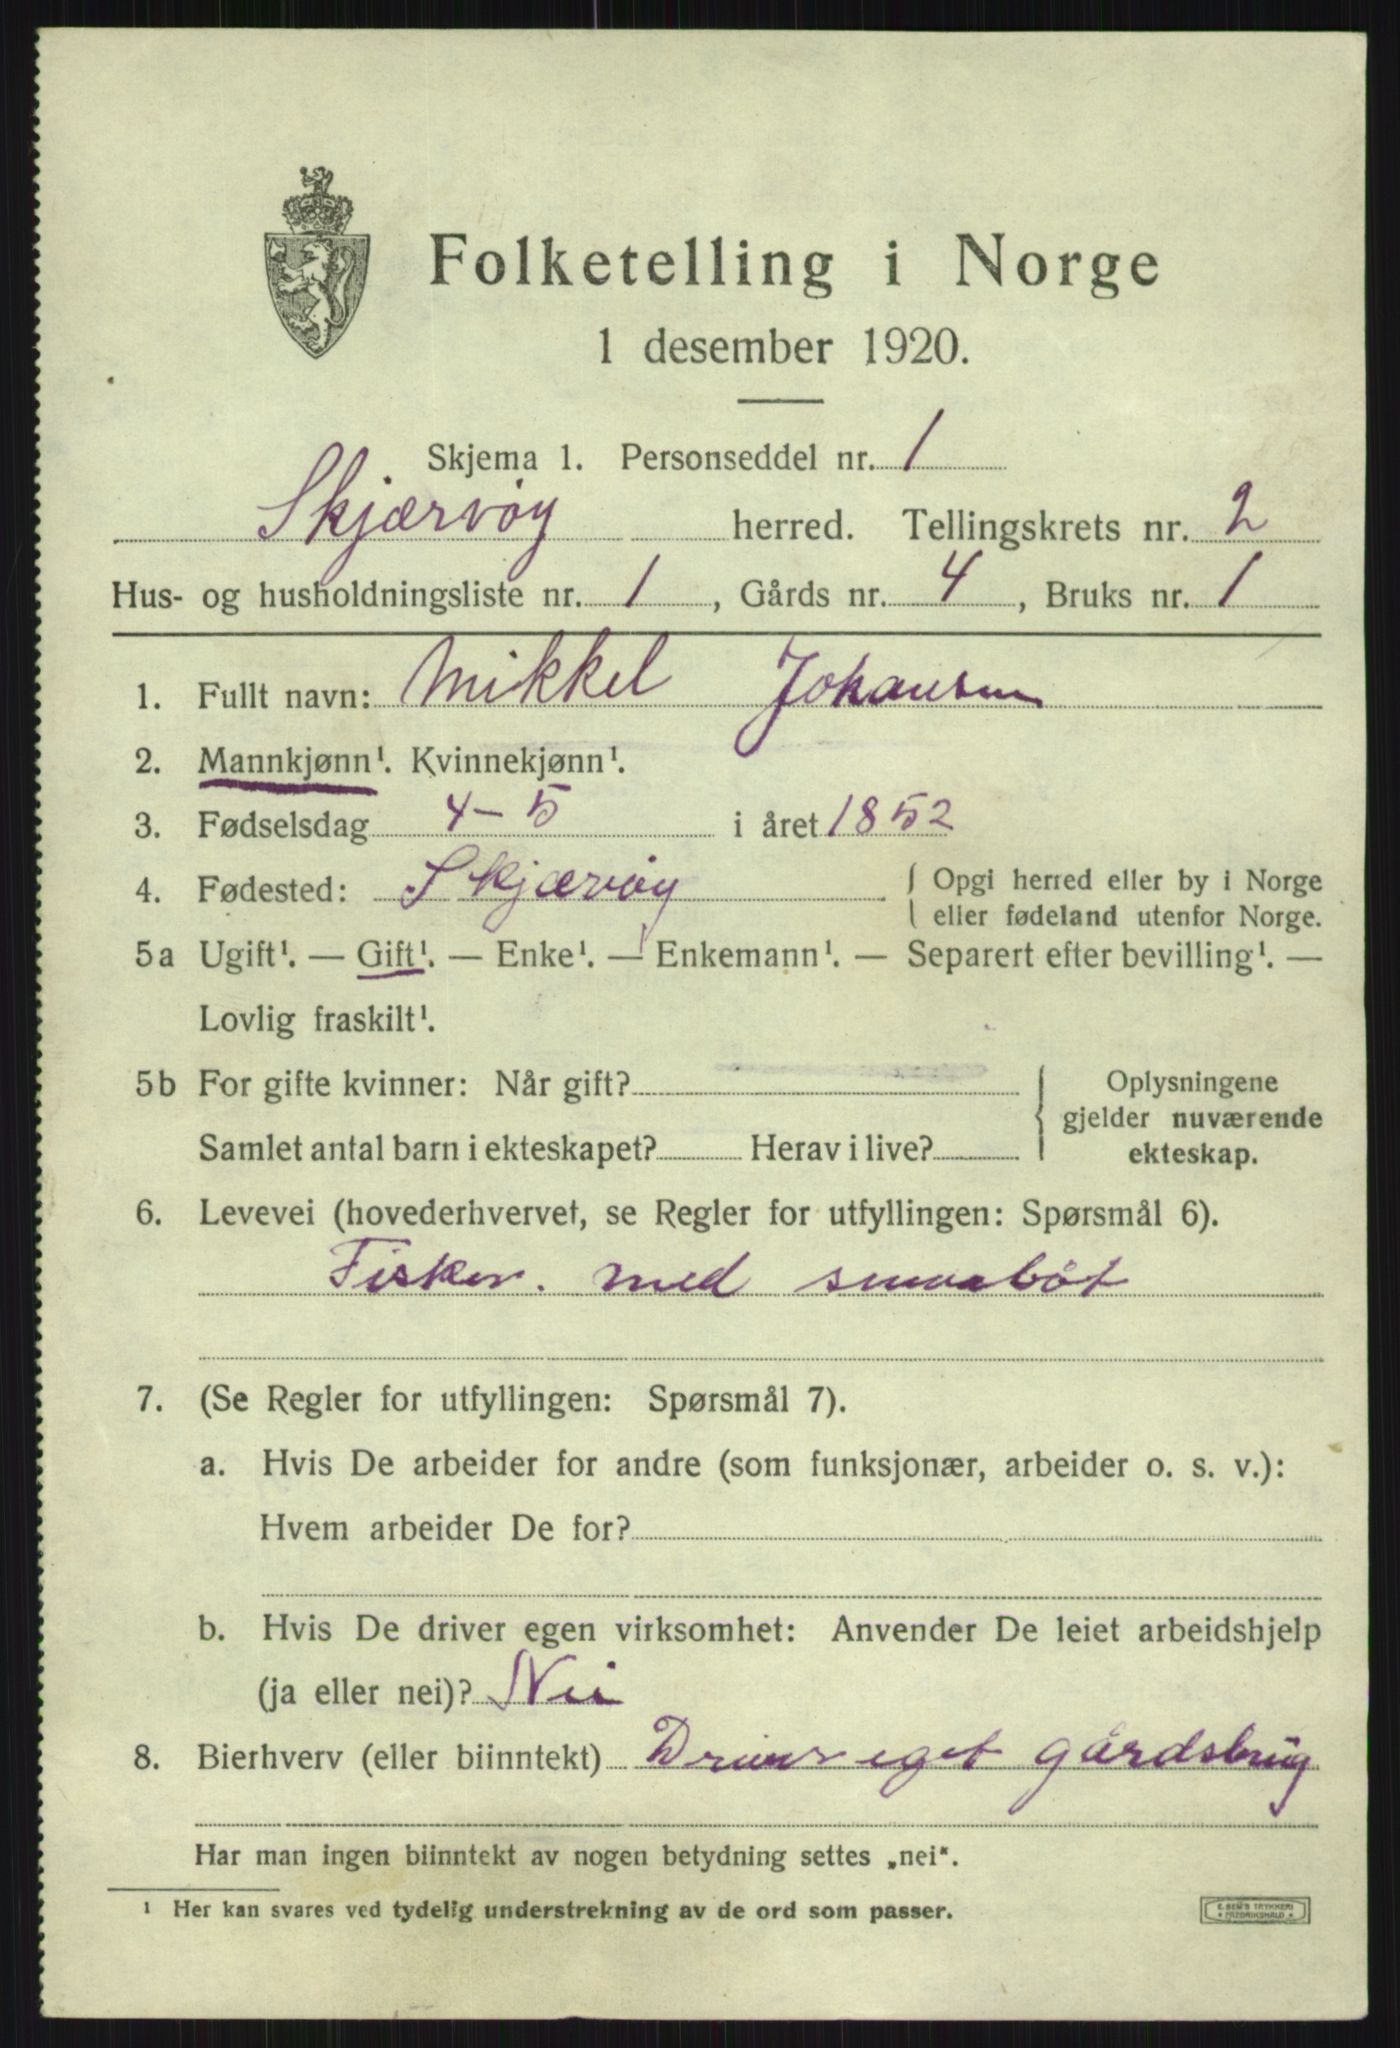 Folketelling i Norge
1 desember 1920.
Skjema 1. Personseddel nr. 1
Skjærvöy herred. Tellingskrets nr. 2
Hus- og husholdningsliste nr. 1, Gårds nr. 4, Bruks nr. 1
1. Fullt navn: Mikkel Johansen
2. Mannkjønn¹. Kvinnekjønn¹.
3. Fødselsdag 4-5 i året 1852
4. Fødested: Skjærvöy { Opgi herred eller by i Norge
eller fødeland utenfor Norge.
5a Ugift¹. — Gift¹. — Enke¹. — Enkemann¹. — Separert efter bevilling¹. —
Lovlig fraskilt¹.
5b For gifte kvinner: Når gift?
Samlet antal barn i ekteskapet? Herav i live?
Oplysningene
gjelder nuværende
ekteskap.
6. Levevei (hovederhvervet, se Regler for utfyllingen: Spørsmål 6).
Fisker. med smaabåt
7. (Se Regler for utfyllingen: Spørsmål 7).
a. Hvis De arbeider for andre (som funksjonær, arbeider o. s. v.):
Hvem arbeider De for?
b. Hvis De driver egen virksomhet: Anvender De leiet arbeidshjelp
(ja eller nei)? Nei
8. Bierhverv (eller biinntekt) Driver eget gårdsbrug
Har man ingen biinntekt av nogen betydning settes „nei".
¹ Her kan svares ved tydelig understrekning av de ord som passer.
E. SEM'S TRYKKERI
* FREDRIKSHALD *